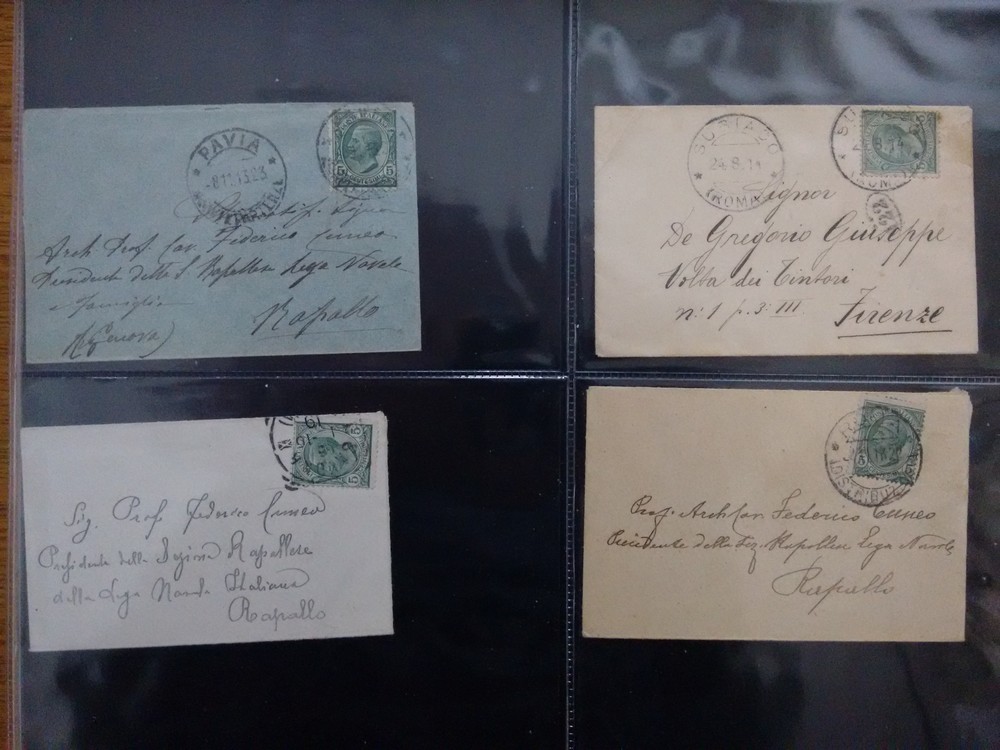 PAVIA
5 5
Arch Prof. Cav. Federico Cuneo
Lega Navale
e famiglia
Rapallo
(Genova)
SUBIACO
24.8.14
(ROMA)
Signor
De Gregorio Giuseppe
Volta dei Tintori
n. 1 p. 3 III
Firenze
Sig. Prof. Federico Cuneo
Presidente della Sezione Rapallese
della Lega Navale Italiana
Rapallo
Prof. Arch Cav. Federico Cuneo
Presidente della Sez. Rapallese Lega Navale
Rapallo